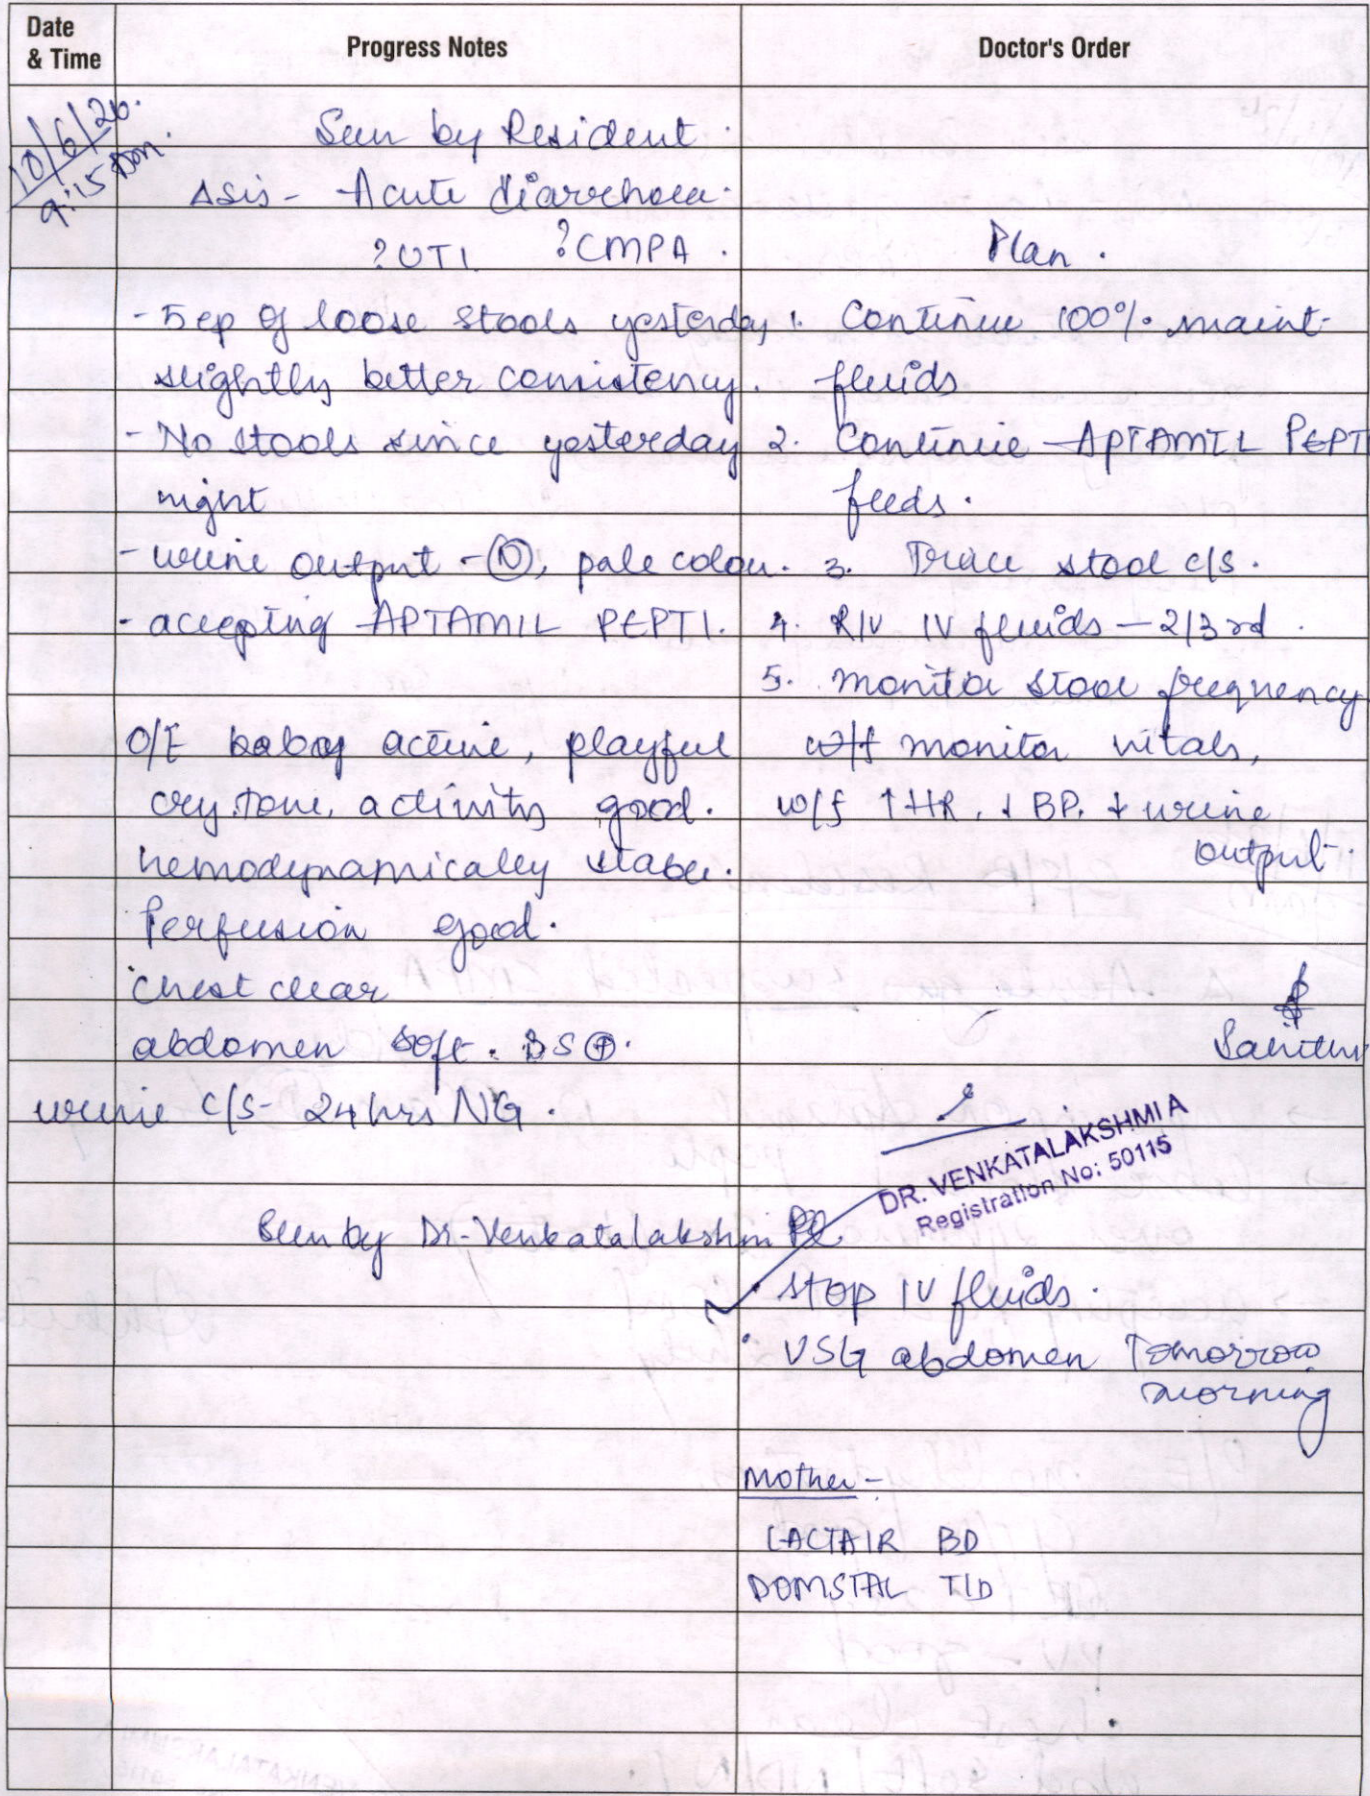 Date
& Time
Progress Notes
Doctor's Order
10/6/26.
9:15 Am.
Seen by Resident.
Δsis - Acute diarrhoea.
?UTI. ?CMPA.
- 5 ep of loose stools yesterday
slightly better consistency.
- No stools since yesterday
night
- urine output - Ⓝ, pale colour.
- accepting APTAMIL PEPTI.
O/E baby active, playful
cry, tone, activity good.
hemodynamically stable.
Perfusion good.
chest clear
abdomen soft. BS ⊕.
urine c/s - 24 hrs NG.
Plan.
1. Continue 100% maint-
fluids.
2. Continue APTAMIL PEPTI
feeds.
3. Trace stool c/s.
4. R/V IV fluids - 2/3rd.
5. monitor stool frequency
monitor vitals,
w/f ↑HR, ↓BP, ↓urine
output.
DR. VENKATALAKSHMI A
Registration No: 50115
Seen by Dr. Venkatalakshmi
• Stop IV fluids.
• USG abdomen Tomorrow
morning
Mother -
LACTAIR BD
DOMSTAL TID